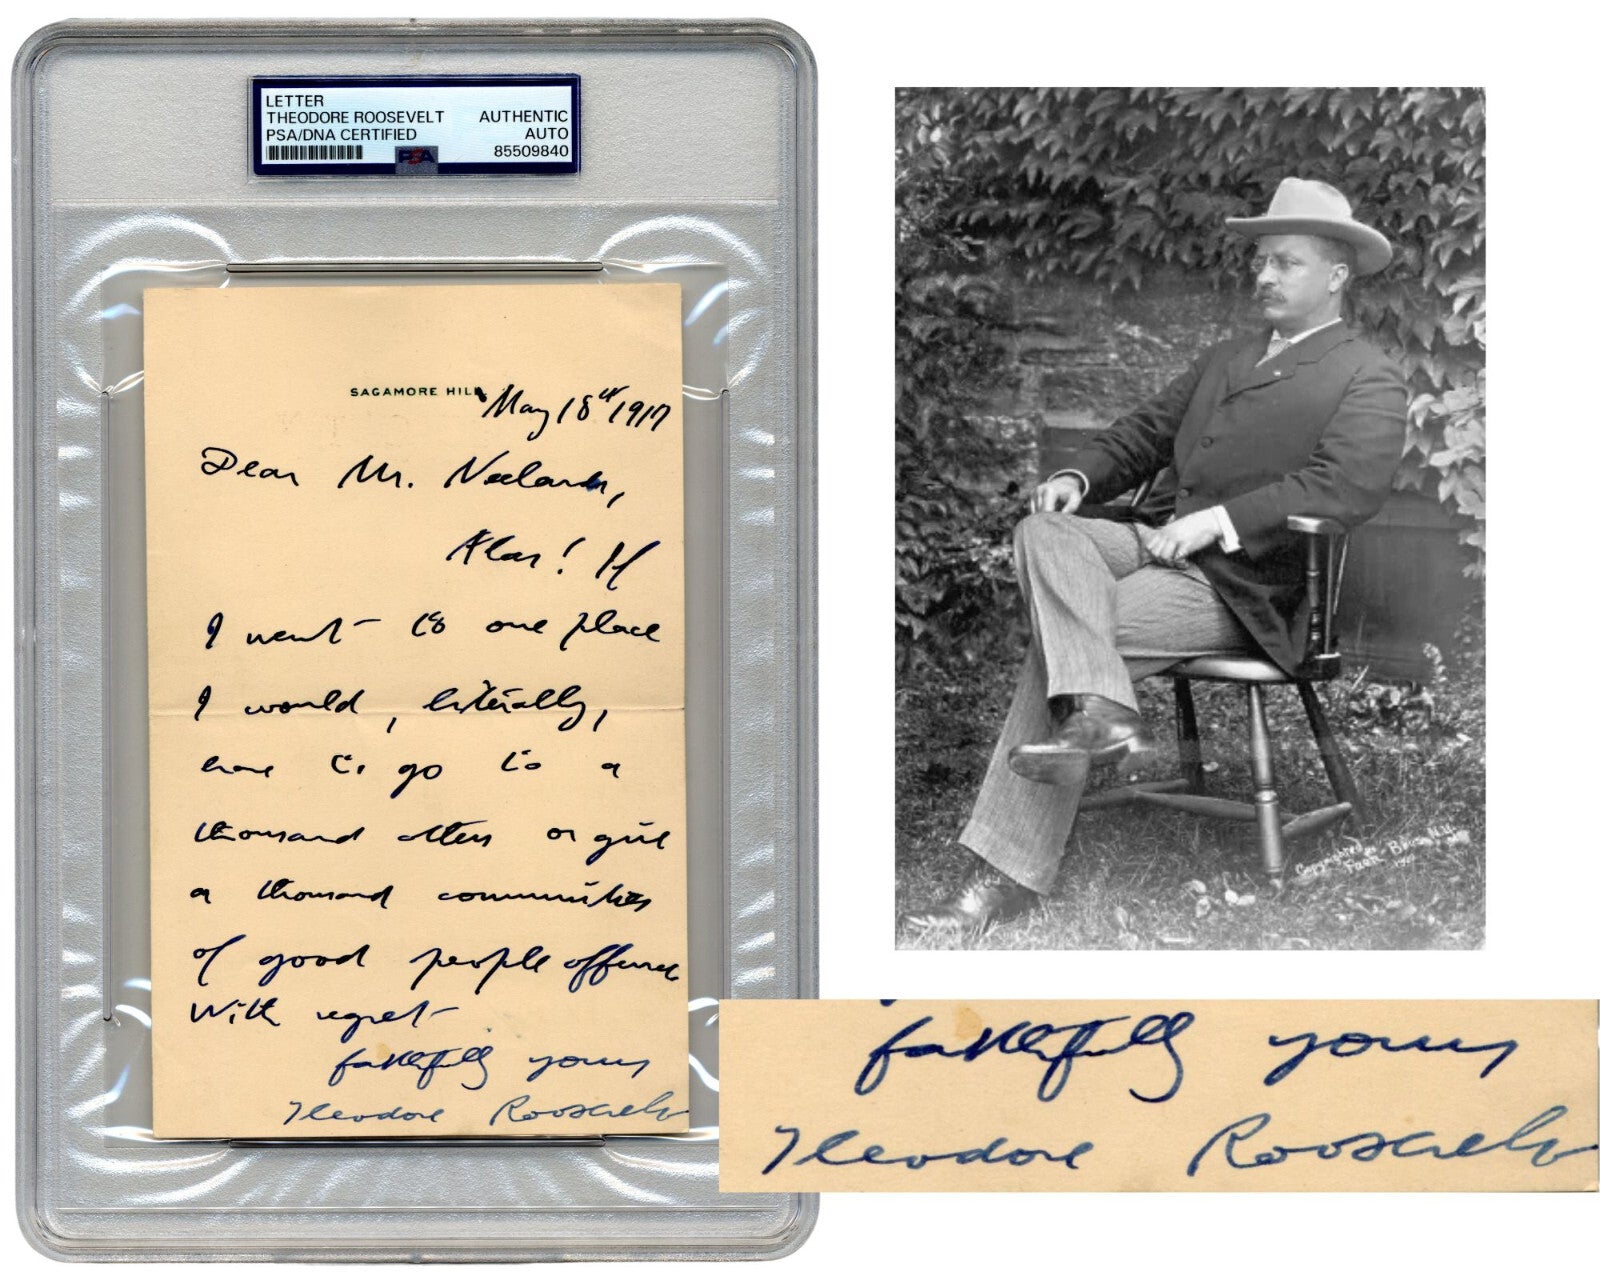 LETTER
THEODORE ROOSEVELT AUTHENTIC
PSA/DNA CERTIFIED AUTO
PSA 85509840
SAGAMORE HILL
May 18th 1917
Dear Mr.
Alas! If
I went to one place
I would, literally,
have to go to a
thousand others or give
a thousand communities
of good people offense
With regret
faithfully yours
Theodore Roosevelt
faithfully yours
Theodore Roosevelt
Copyrighted